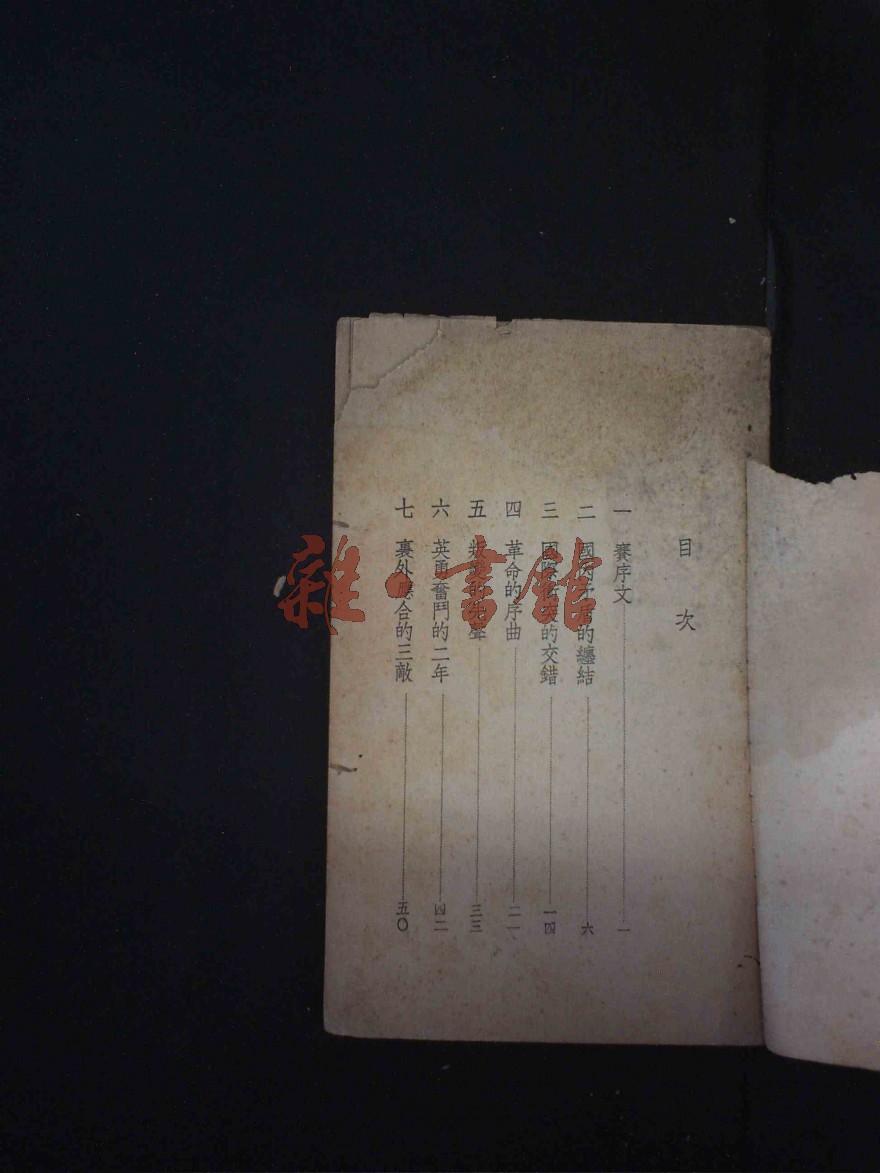 目次
一 賽序文 一
二 國內矛盾的纏結 六
三 國際的交錯 一四
四 革命的序曲 二一
五 叛變的先聲 三三
六 英勇奮鬥的二年 四二
七 裏外應合的三敵 五〇
雜·書館